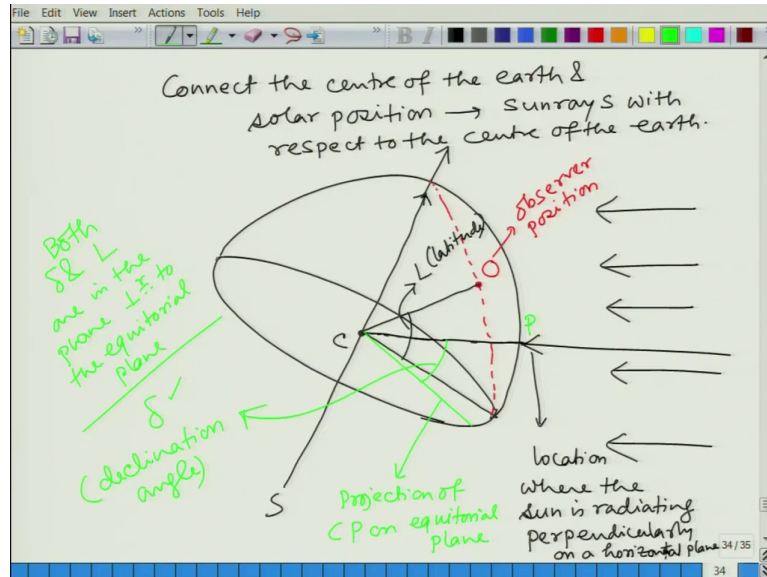 File Edit View Insert Actions Tools Help
B I
Connect the centre of the earth &
solar position → sunrays with
respect to the centre of the earth.
observer
position
O
L (latitude)
Both
δ & L
are in the
plane ⊥r. to
the equitorial
plane
P
C
δ
(declination
angle)
S
Projection of
CP on equitorial
plane
location
where the
sun is radiating
perpendicularly
on a horizontal plane
34/35
34